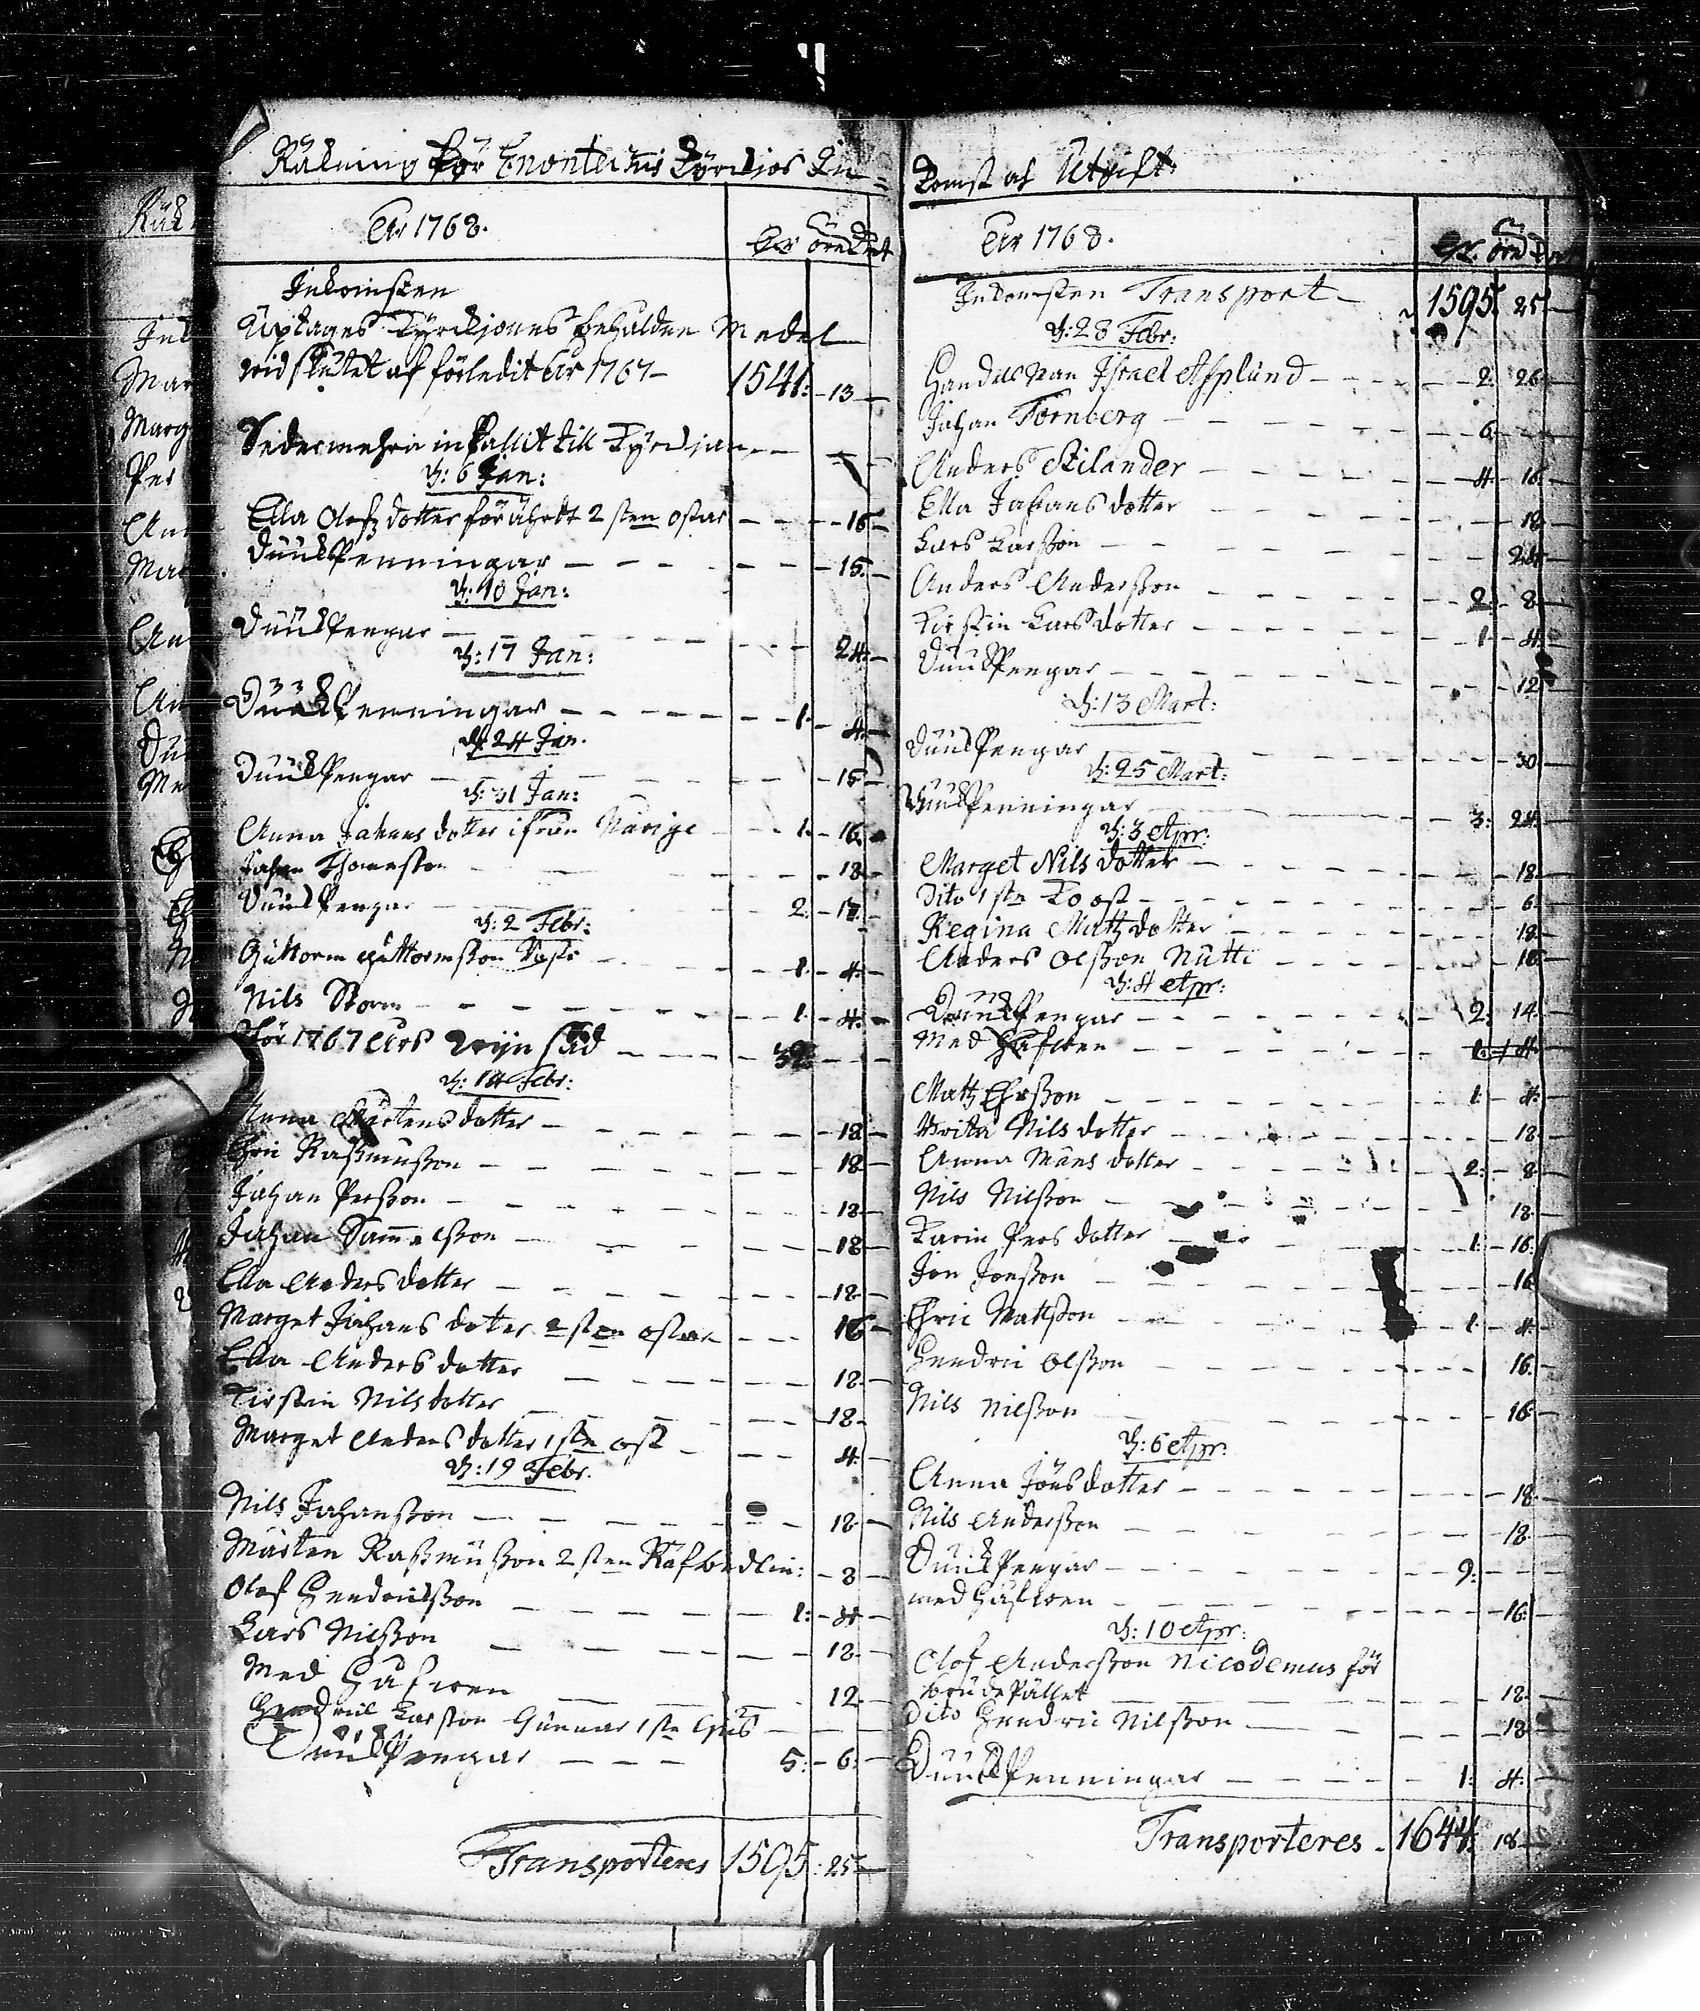 Räkning för Enonteckis Kyrckios In=
År 1768.
Dr öre
Inkomsten
Uptages Kyrckjones behåldne Medel
wid slutet af förledit År 1767 1541: 13
Sedermehra infallit till Kyrckjan
d: 6 Jan:
Ella Olofz dotter förährdt 2 sten ostar 16
Duuspenningar 15
d: 10 Jan:
Duuspengar 24
d: 17 Jan:
Duuspenningar 1: 4
d: 24 Jan.
Duuspengar 15
d: 31 Jan:
Anna Johans dotter ifrån 1: 16
Johan Thomesson 18
Duuspengar 2: 17
d: 2 Febr:
Guttorm Guttormsson 1: 4
Nils Storm 1: 4
För 1767 Års Wijn säd 39
d: 14 Febr:
Anna Mårtens dotter 18
Eric Rasmusson 18
Johan Persson 18
Johan Samuelsson 18
Ella Anders dotter 18
Marget Johans doter 2 sten ostar 16
Ella Anders dotter 18
Kirstin Nils dotter 18
Marget Anders dotter 1 ste ost 4
d: 19 Febr.
Nils Johansson 18
Mårten Rasmusson 2 sten 8
Olof Hendricsson 1: 4
Lars Nilsson 18
Med Håfwen 12
Hendric Larsson Gunnar 1 ste
Duuspengar 5: 6
Transporteres 1595: 25
komst af Utgift:
År 1768.
Dr. öre
Inkomsten Transport 1595: 25
d: 28 Febr:
Handelsman Israel Asplund 2: 26
Johan Fornberg 6
Anders Stilander 4: 16
Ella Johans dotter 18
Lars Larsson 24
Anders Andersson 2: 8
Kirstin Lars dotter 1: 4
Duuspengar 12
d: 13 Mart:
Duuspengar 30
d: 25 Mart:
Duuspenningar 3: 24
d: 3 Apr:
Marget Nils dotter 18
Dito 1 ste ko ost 6
Regina Matz dotter 18
Anders Olsson Nutti 18
d: 4 Apr:
Duuspengar 2: 14
Med Håfwen
Matz Ersson 1: 4
Brita Nils dotter 18
Anna Måns dotter 2: 8
Nils Nilsson 18
Karin Pers dotter 1: 16
Jon Jonsson 16
Eric Mattsson 1: 4
Hendric Olsson 16
Nils Nilsson 16
d: 6 Apr:
Anna Jöns dotter 18
Nils Andersson 18
Duuspengar 9
med Håfwen 16
d: 10 Apr:
Olof Andersson Nicodemus för
brudepället 18
Dito Hendric Nilsson 18
Duuspenningar 1: 4
Transporteres 1644: 18